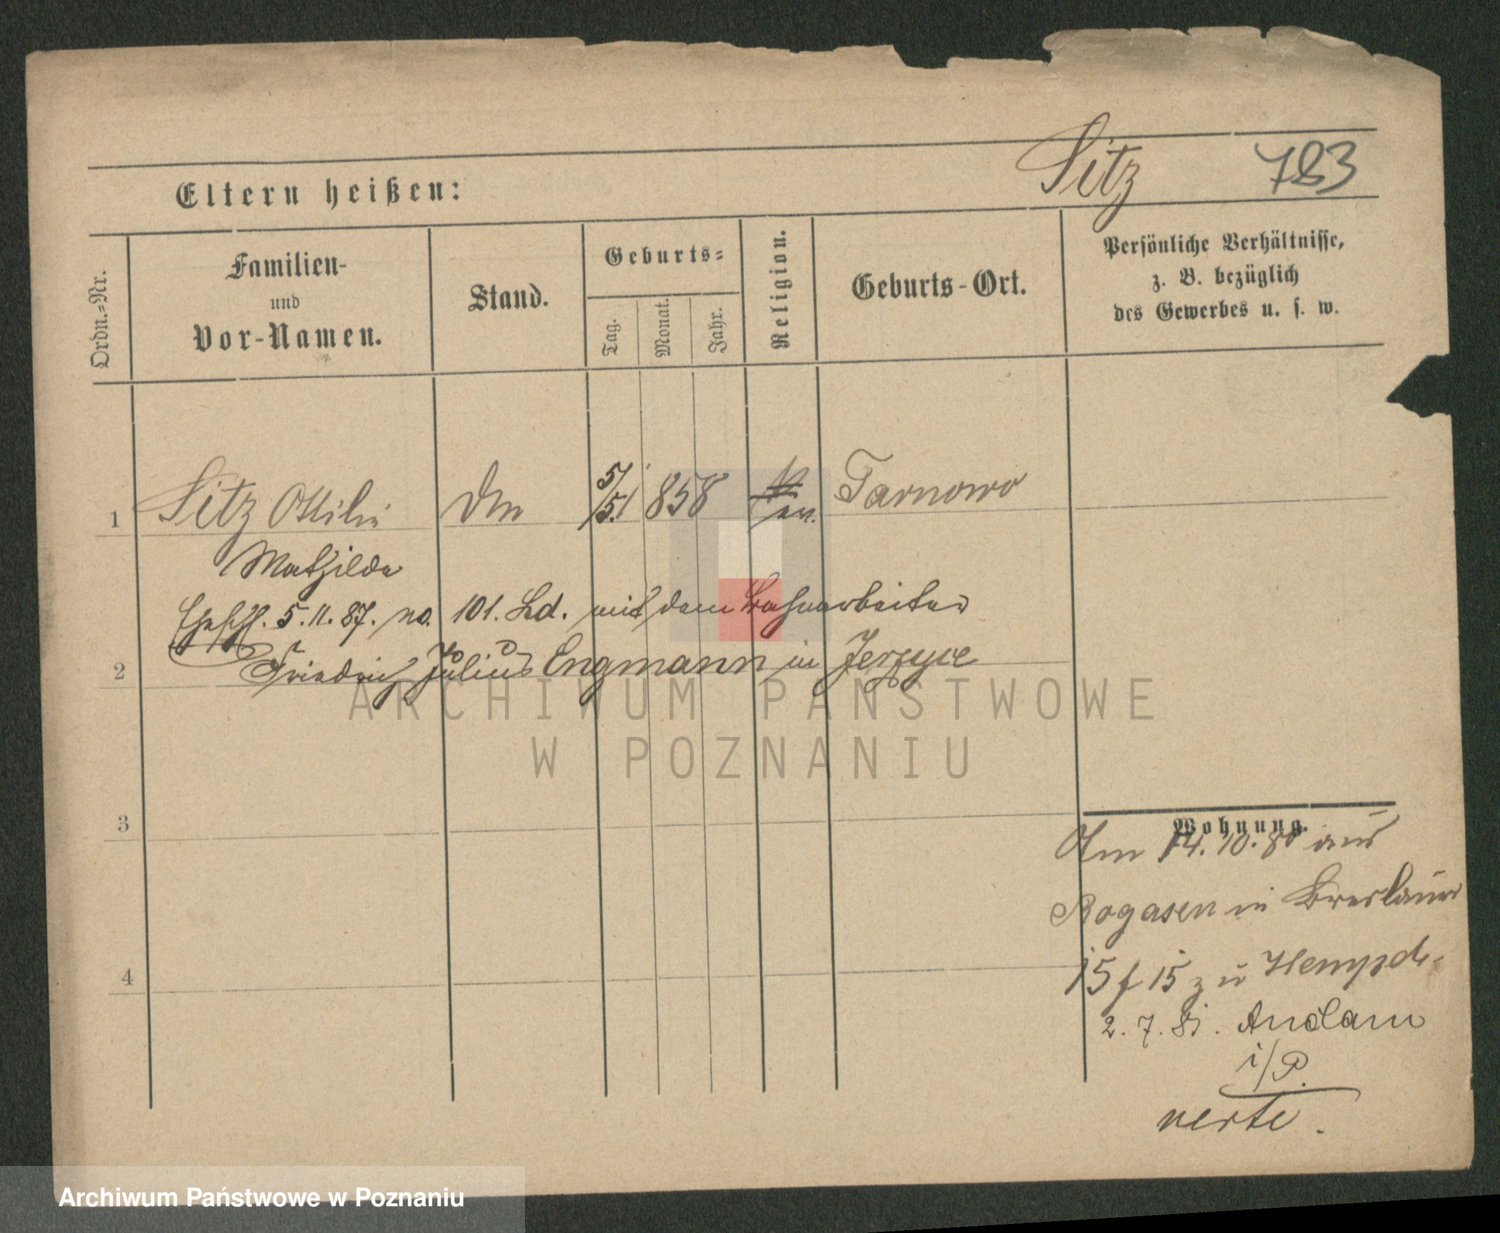 Sitz 783
Eltern heißen:
Ordn.=Nr.
Familien-
und
Vor-Namen.
Stand.
Geburts=
Tag.
Monat.
Jahr.
Religion.
Geburts-Ort.
Persönliche Verhältnisse,
z. B. bezüglich
des Gewerbes u. s. w.
1 Sitz Ottilie 5/5. 858 ev. Tarnowo
Mathilde
5. 11. 87. no. 101. mit dem Bahnarbeiter
2 Friedrich Julius Engmann in Jerzyce
3
4
Wohnung.
Am 14. 10. 80 aus
Rogasen in Breslauer
15 f 15 zu
2. 7. 81.
i/P.
verte.
ARCHIWUM PAŃSTWOWE
W POZNANIU
Archiwum Państwowe w Poznaniu